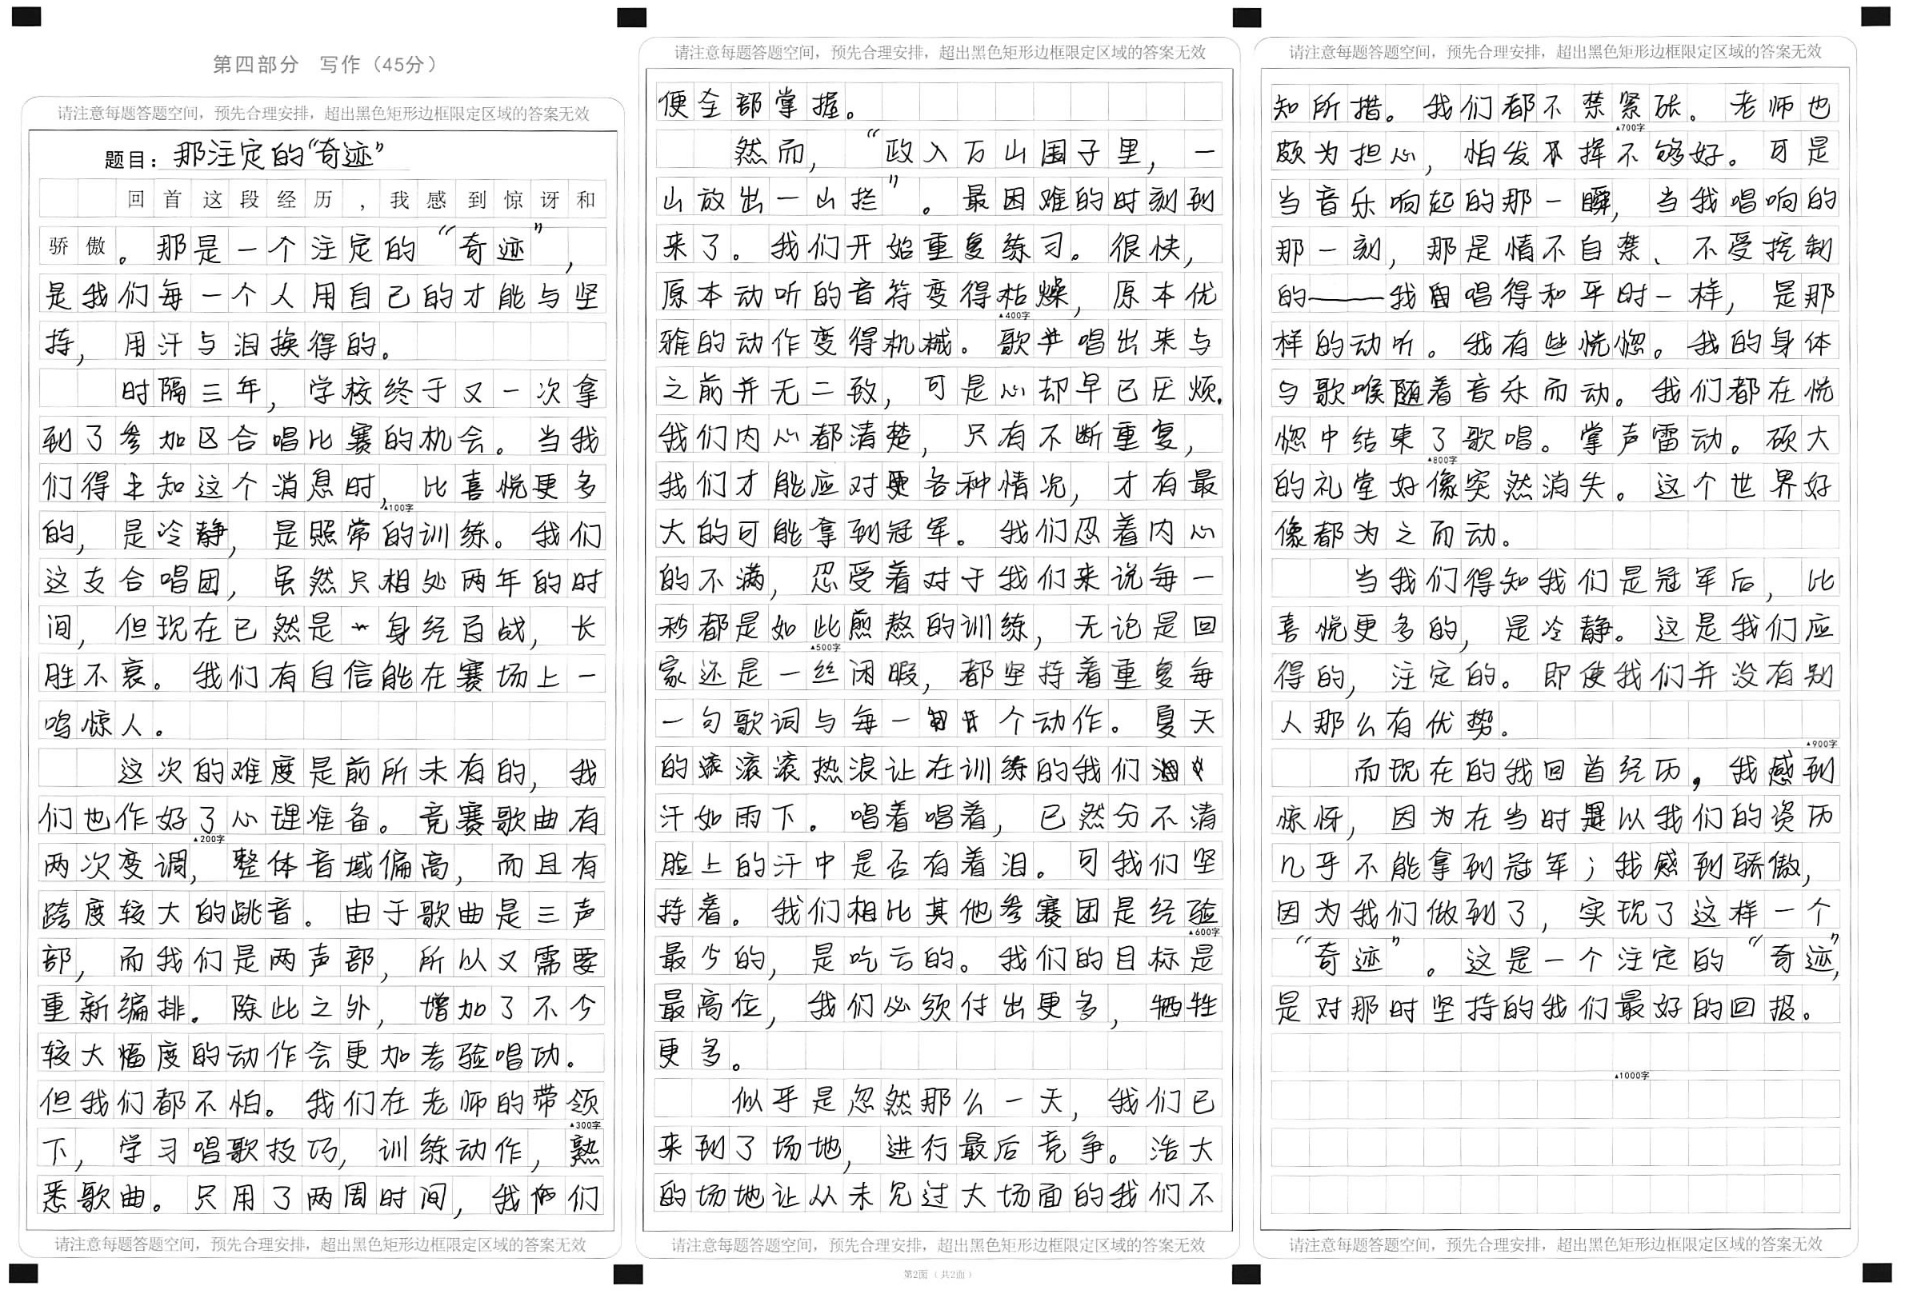 第四部分 写作（45分）
请注意每题答题空间，预先合理安排，超出黑色矩形边框限定区域的答案无效
题目：那注定的“奇迹”
回首这段经历，我感到惊讶和
骄傲。那是一个注定的“奇迹”，
是我们每一个人用自己的才能与坚
持，用汗与泪换得的。
时隔三年，学校终于又一次拿
到了参加区合唱比赛的机会。当我
们得知这个消息时，比喜悦更多
▲100字
的，是冷静，是照常的训练。我们
这支合唱团，虽然只相处两年的时
间，但现在已然是身经百战，长
胜不衰。我们有自信能在赛场上一
鸣惊人。
这次的难度是前所未有的，我
们也作好了心理准备。竞赛歌曲有
▲200字
两次变调，整体音域偏高，而且有
跨度较大的跳音。由于歌曲是三声
部，而我们是两声部，所以又需要
重新编排。除此之外，增加了不少
较大幅度的动作会更加考验唱功。
但我们都不怕。我们在老师的带领
▲300字
下，学习唱歌技巧，训练动作，熟
悉歌曲。只用了两周时间，我们
请注意每题答题空间，预先合理安排，超出黑色矩形边框限定区域的答案无效
请注意每题答题空间，预先合理安排，超出黑色矩形边框限定区域的答案无效
便全部掌握。
然而，“政入万山围子里，一
山放出一山拦”。最困难的时刻到
来了。我们开始重复练习。很快，
原本动听的音符变得枯燥，原本优
▲400字
雅的动作变得机械。歌唱出来与
之前并无二致，可是心却早已厌烦。
我们内心都清楚，只有不断重复，
我们才能应对各种情况，才有最
大的可能拿到冠军。我们忍着内心
的不满，忍受着对于我们来说每一
秒都是如此煎熬的训练，无论是回
▲500字
家还是一丝闲暇，都坚持着重复每
一句歌词与每一个动作。夏天
的滚滚热浪让在训练的我们
汗如雨下。唱着唱着，已然分不清
脸上的汗中是否有着泪。可我们坚
持着。我们相比其他参赛团是经验
▲600字
最少的，是吃亏的。我们的目标是
最高位，我们必须付出更多，牺牲
更多。
似乎是忽然那么一天，我们已
来到了场地，进行最后竞争。浩大
的场地让从未见过大场面的我们不
请注意每题答题空间，预先合理安排，超出黑色矩形边框限定区域的答案无效
第2面（共2面）
请注意每题答题空间，预先合理安排，超出黑色矩形边框限定区域的答案无效
知所措。我们都不禁紧张。老师也
▲700字
颇为担心，怕发挥不够好。可是
当音乐响起的那一瞬，当我唱响的
那一刻，那是情不自禁、不受控制
的——我唱得和平时一样，是那
样的动听。我有些恍惚。我的身体
与歌喉随着音乐而动。我们都在恍
惚中结束了歌唱。掌声雷动。硕大
▲800字
的礼堂好像突然消失。这个世界好
像都为之而动。
当我们得知我们是冠军后，比
喜悦更多的，是冷静。这是我们应
得的，注定的。即使我们并没有别
人那么有优势。
▲900字
而现在的我回首经历，我感到
惊讶，因为在当时以我们的资历
几乎不能拿到冠军；我感到骄傲，
因为我们做到了，实现了这样一个
“奇迹”。这是一个注定的“奇迹”，
是对那时坚持的我们最好的回报。
▲1000字
请注意每题答题空间，预先合理安排，超出黑色矩形边框限定区域的答案无效